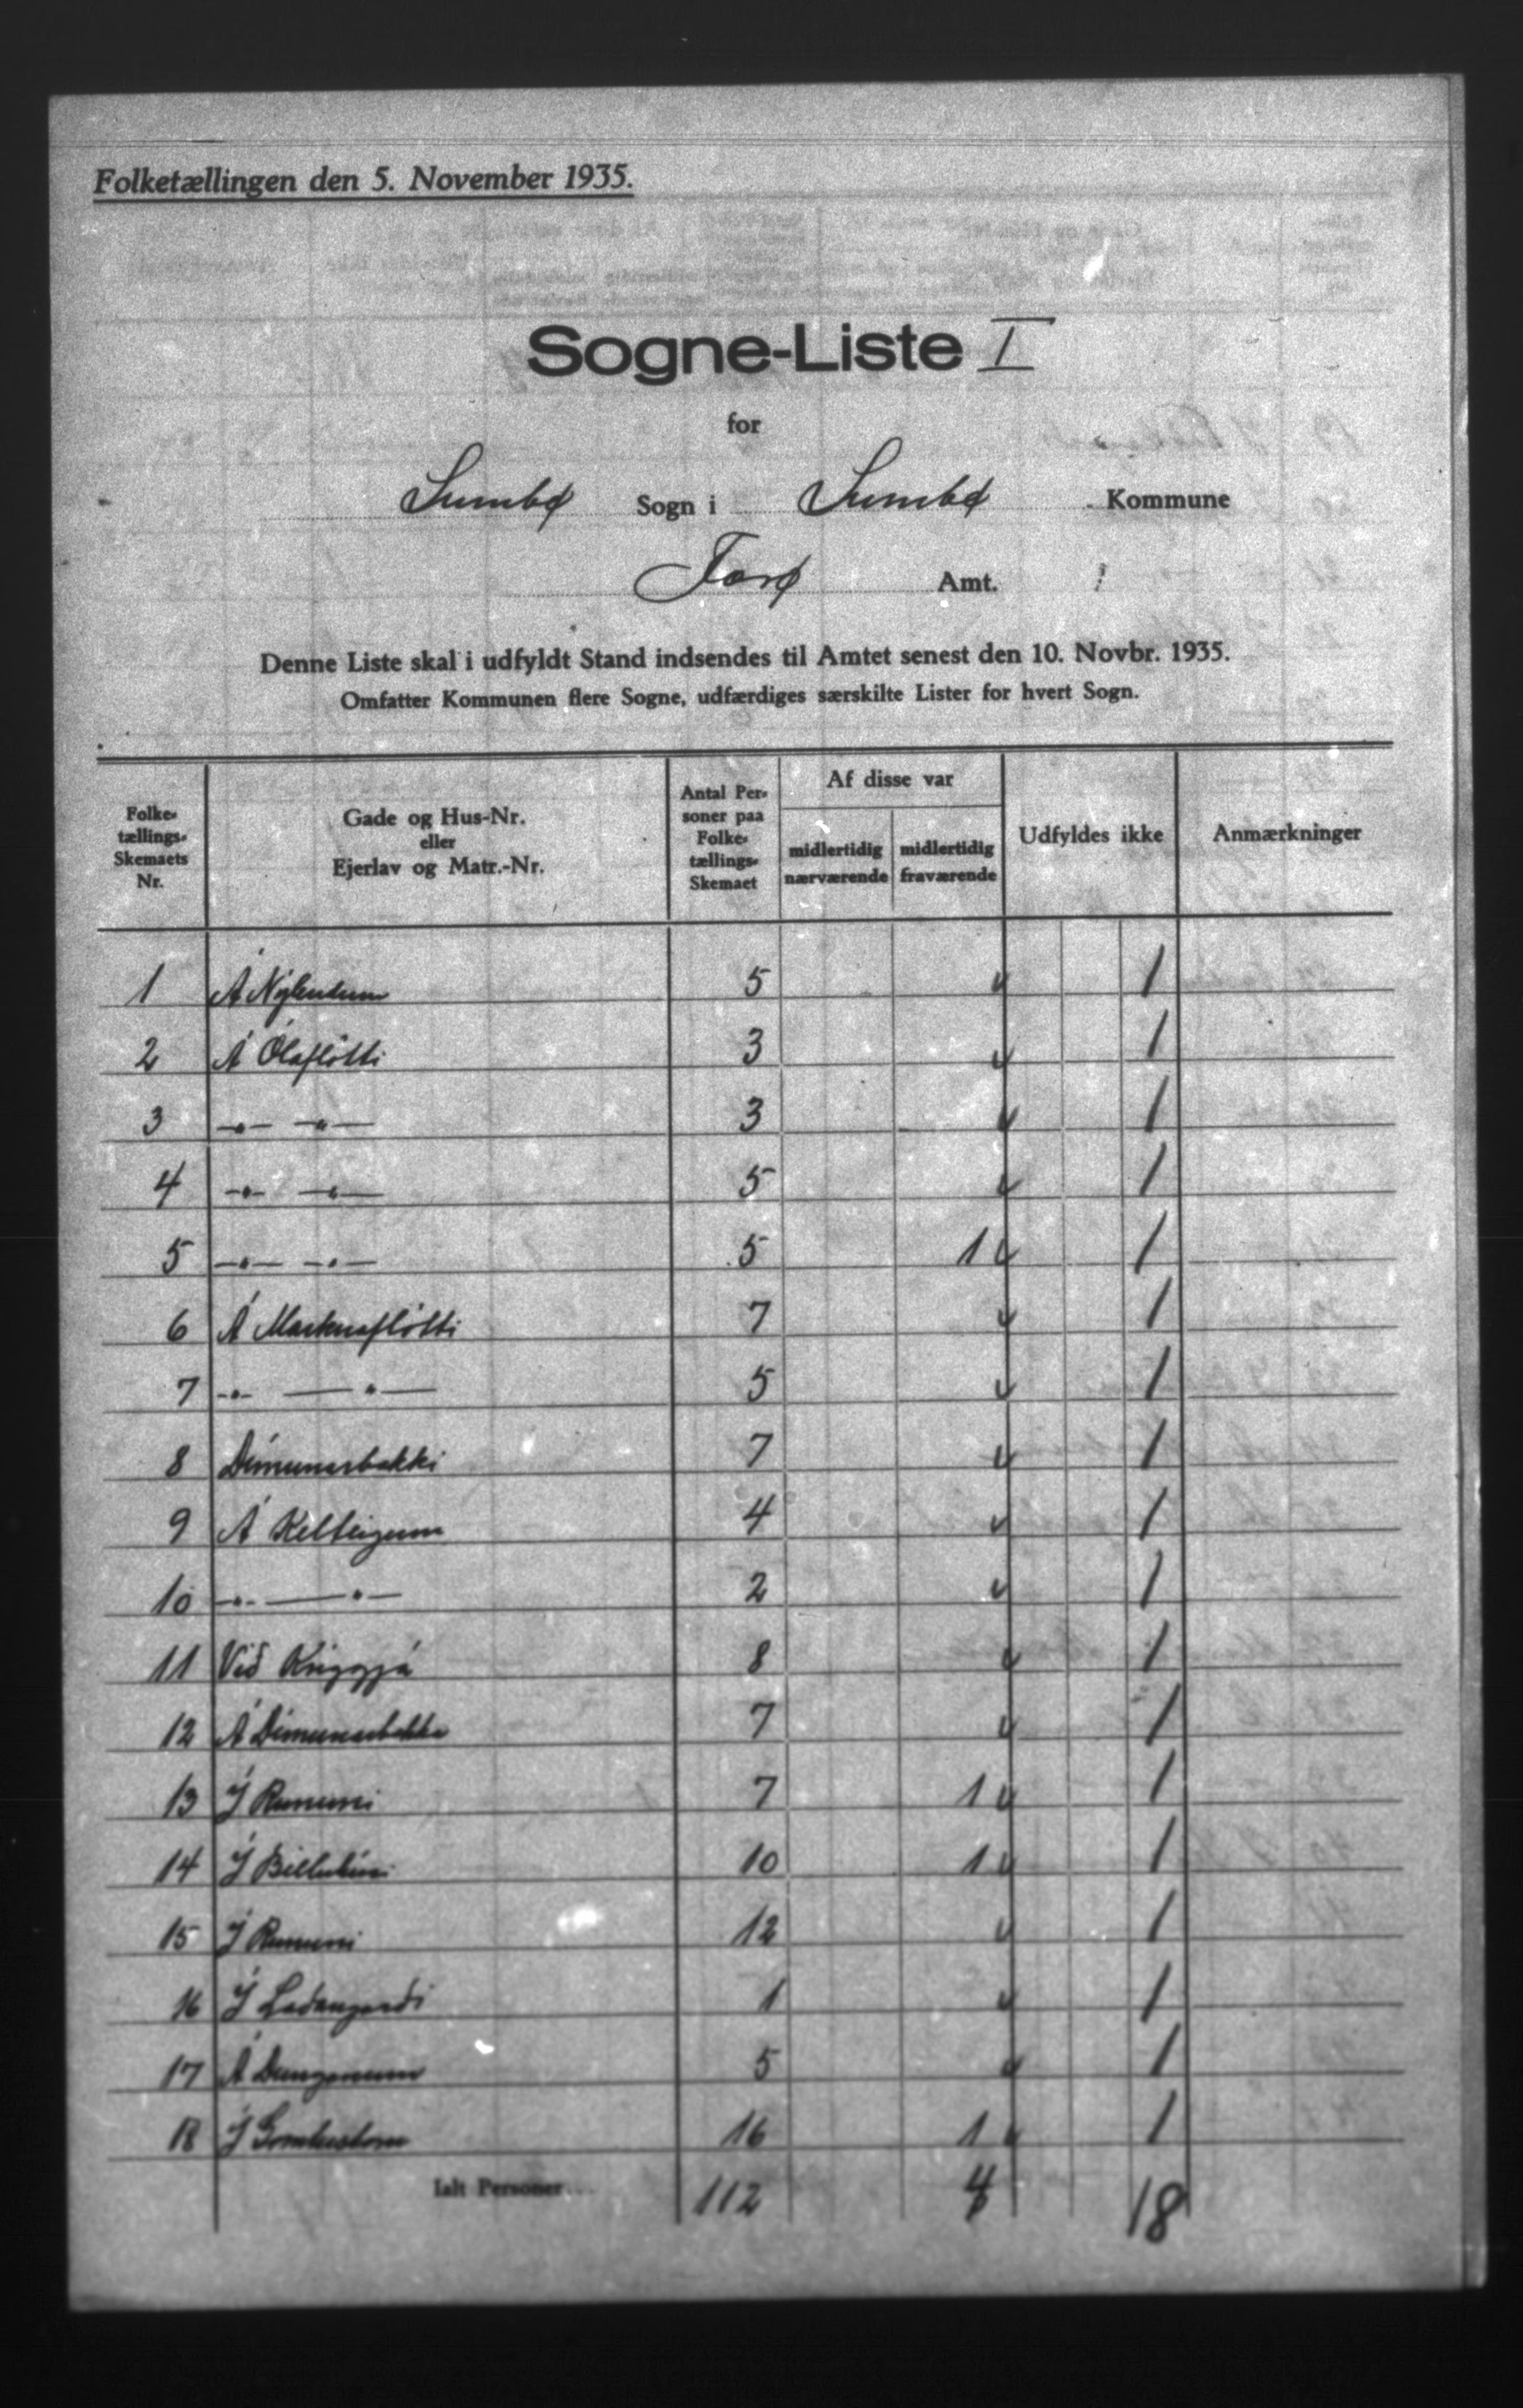 Folketællingen den 5. November 1935.
Sogne-Liste I
for
Sumbø Sogn i Sumbø Kommune
Færø Amt.
Denne Liste skal i udfyldt Stand indsendes til Amtet senest den 10. Novbr. 1935.
Omfatter Kommunen flere Sogne, udfærdiges særskilte Lister for hvert Sogn.
Folketællings-Skemaets Nr. Gade og Hus-Nr. eller Ejerlav og Matr.-Nr. Antal Personer paa Folketællings-Skemaet Af disse var midlertidig nærværende midlertidig fraværende Udfyldes ikke Anmærkninger
1 Á Nýlendum 5 1
2 Á Ólafløtti 3 1
3 —"— —"— 3 1
4 —"— —"— 5 1
5 —"— —"— 5 1 1
6 Á Marknafløtti 7 1
7 —"— —"— 5 1
8 Dímunarbakki 7 1
9 Á Kelteigum 4 1
10 —"— —"— 2 1
11 Við 8 1
12 Á Dímunarbakka 7 1
13 Í 7 1 1
14 Í 10 1 1
15 Í 12 1
16 Í Ladangardi 1 1
17 Á 5 1
18 Í 16 1 1
Ialt Personer 112 4 18